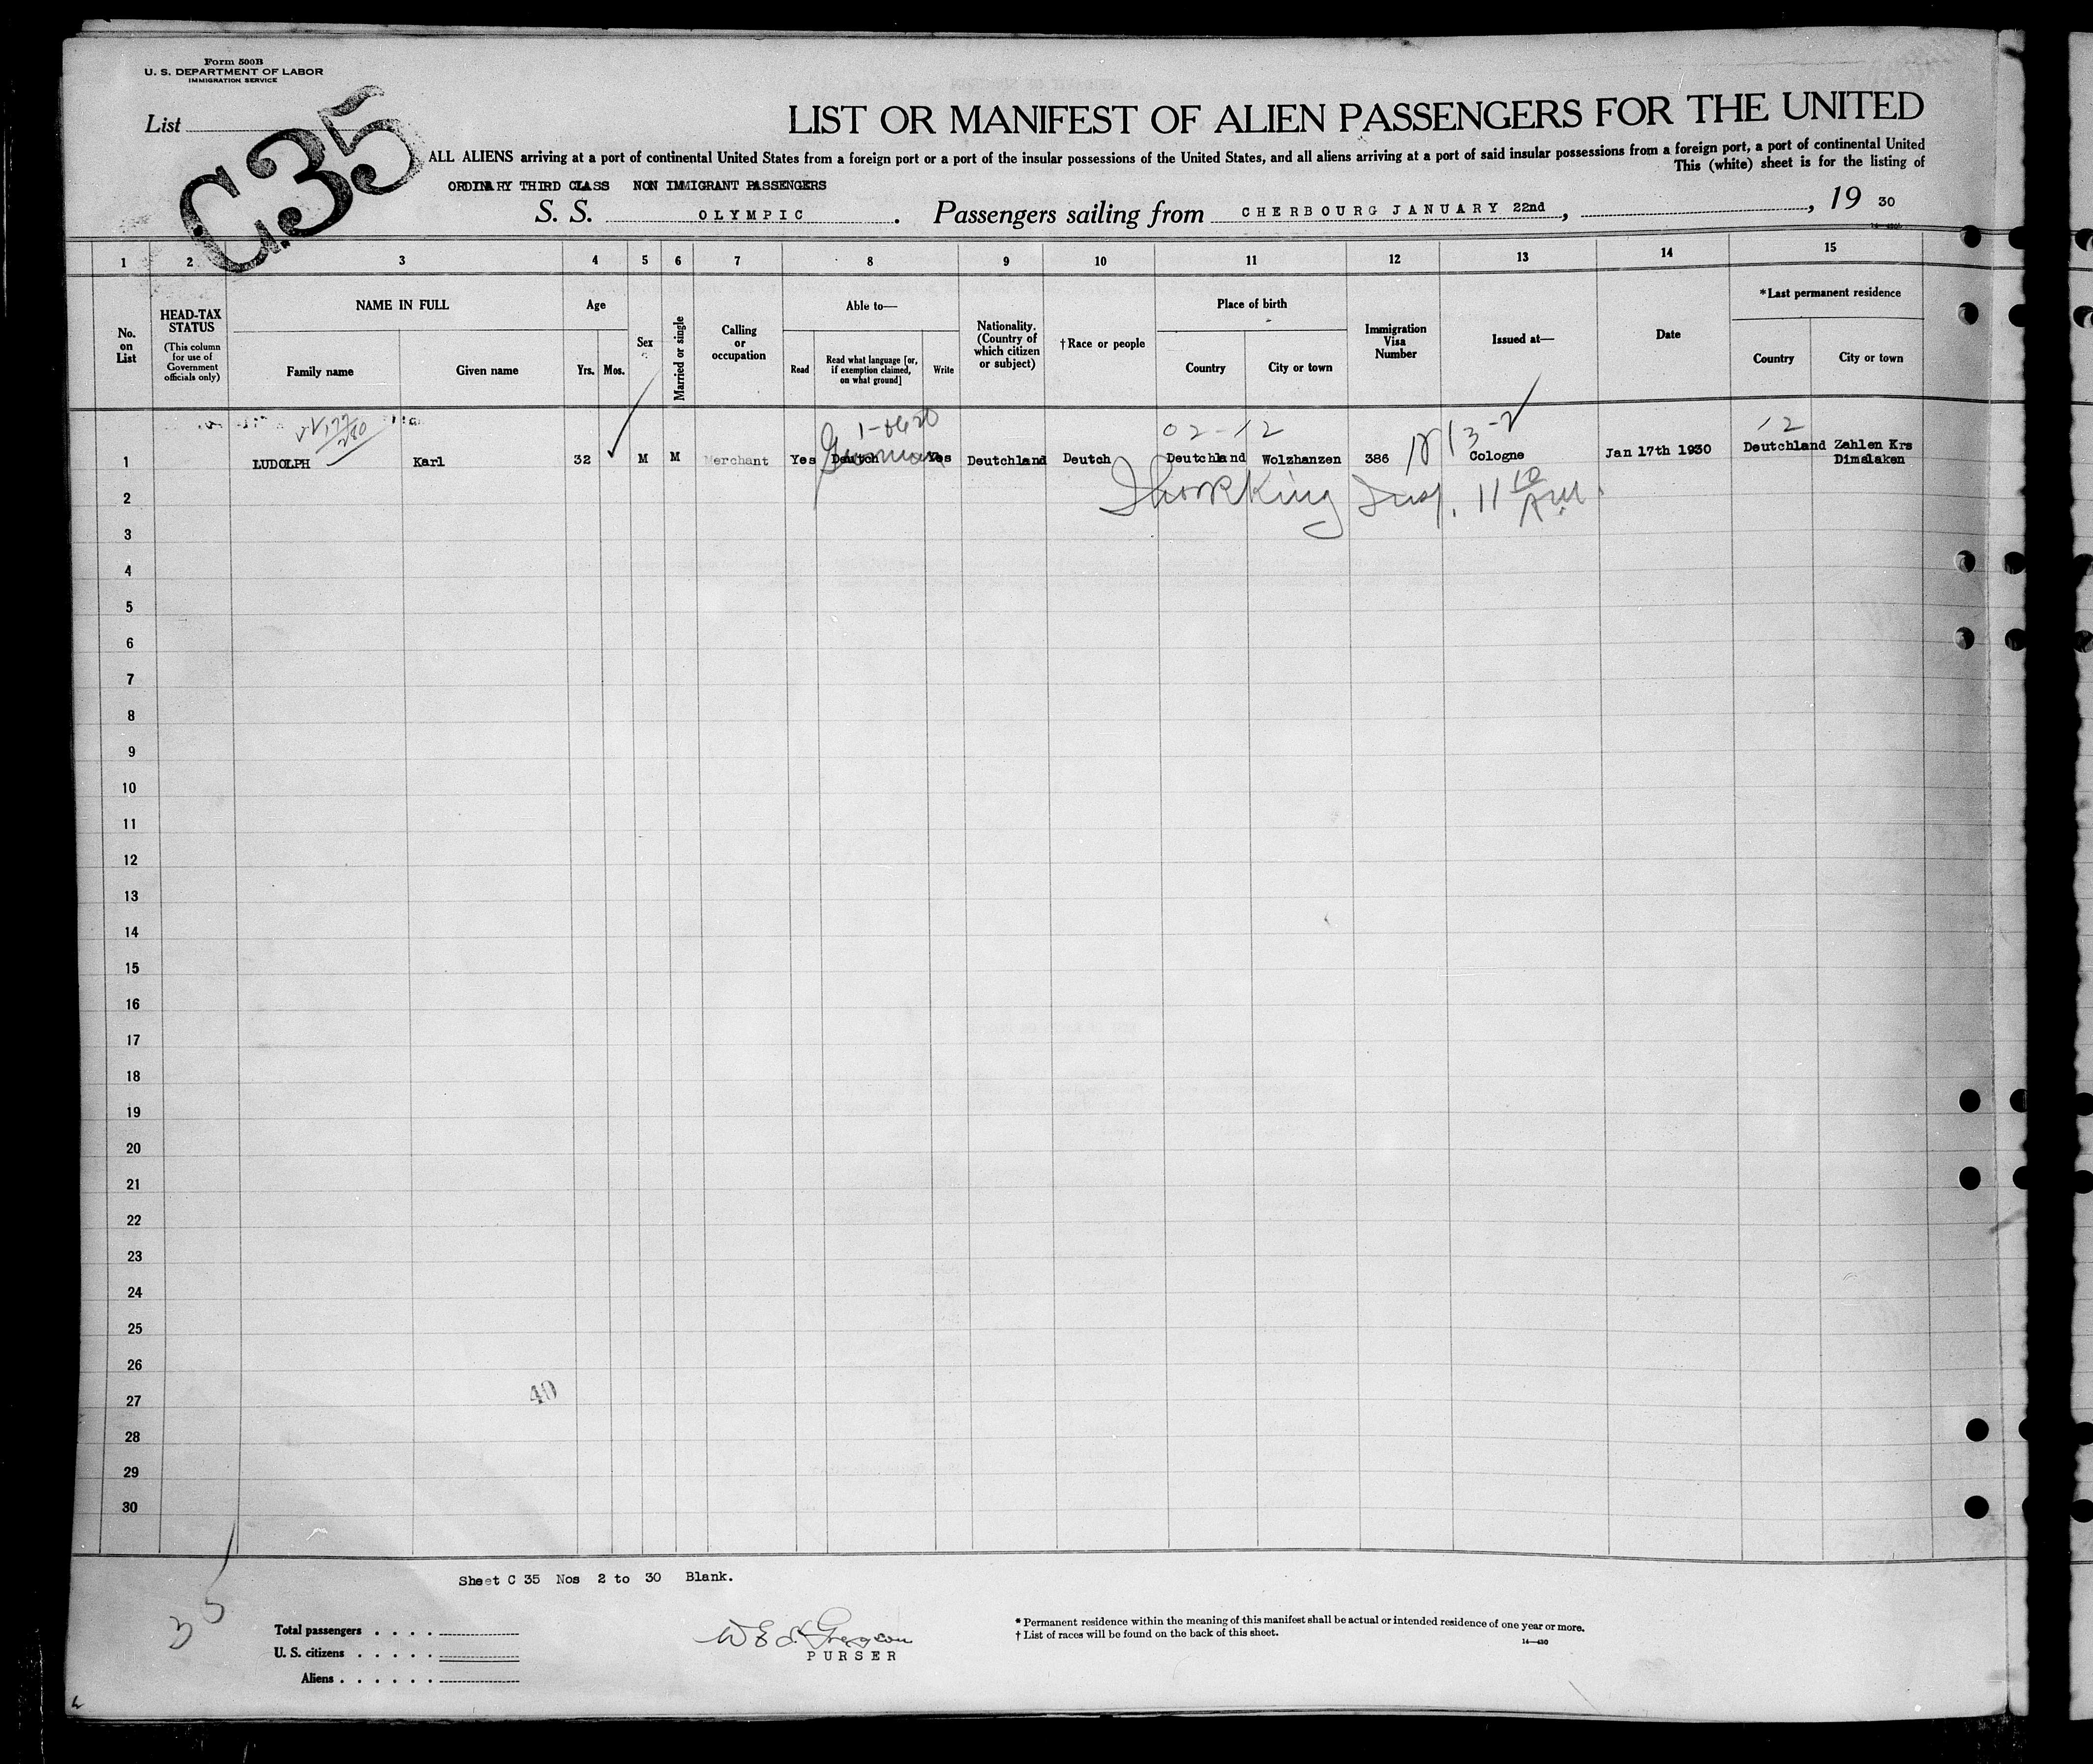 Form 500B
U. S. DEPARTMENT OF LABOR
IMMIGRATION SERVICE
List
C.35
LIST OR MANIFEST OF ALIEN PASSENGERS FOR THE UNITED
ALL ALIENS arriving at a port of continental United States from a foreign port or a port of the insular possessions of the United States, and all aliens arriving at a port of said insular possessions from a foreign port, a port of continental United
This (white) sheet is for the listing of
ORDINARY THIRD CLASS NON IMMIGRANT PASSENGERS
S. S. OLYMPIC . Passengers sailing from CHERBOURG JANUARY 22nd, , 19 30
1 2 3 4 5 6 7 8 9 10 11 12 13 14 15
No. on List
HEAD-TAX STATUS
(This column for use of Government officials only)
NAME IN FULL
Family name
Given name
Age
Yrs. Mos.
Sex
Married or single
Calling or occupation
Able to—
Read
Read what language [or, if exemption claimed, on what ground]
Write
Nationality. (Country of which citizen or subject)
†Race or people
Place of birth
Country
City or town
Immigration Visa Number
Issued at—
Date
*Last permanent residence
Country
City or town
02-12
13-2
12
German
1 LUDOLPH Karl 32 M M Merchant Yes Deutch Yes Deutchland Deutch Deutchland Wolzhanzen 386 Cologne Jan 17th 1930 Deutchland Zahlen Krs
Dimslaken
Insp. 11 10 AM.
2
3
4
5
6
7
8
9
10
11
12
13
14
15
16
17
18
19
20
21
22
23
24
25
26
27
40
28
29
30
Sheet C 35 Nos 2 to 30 Blank.
35
Total passengers . . . .
U. S. citizens . . . . .
Aliens . . . . . .
PURSER
* Permanent residence within the meaning of this manifest shall be actual or intended residence of one year or more.
† List of races will be found on the back of this sheet.
14—430